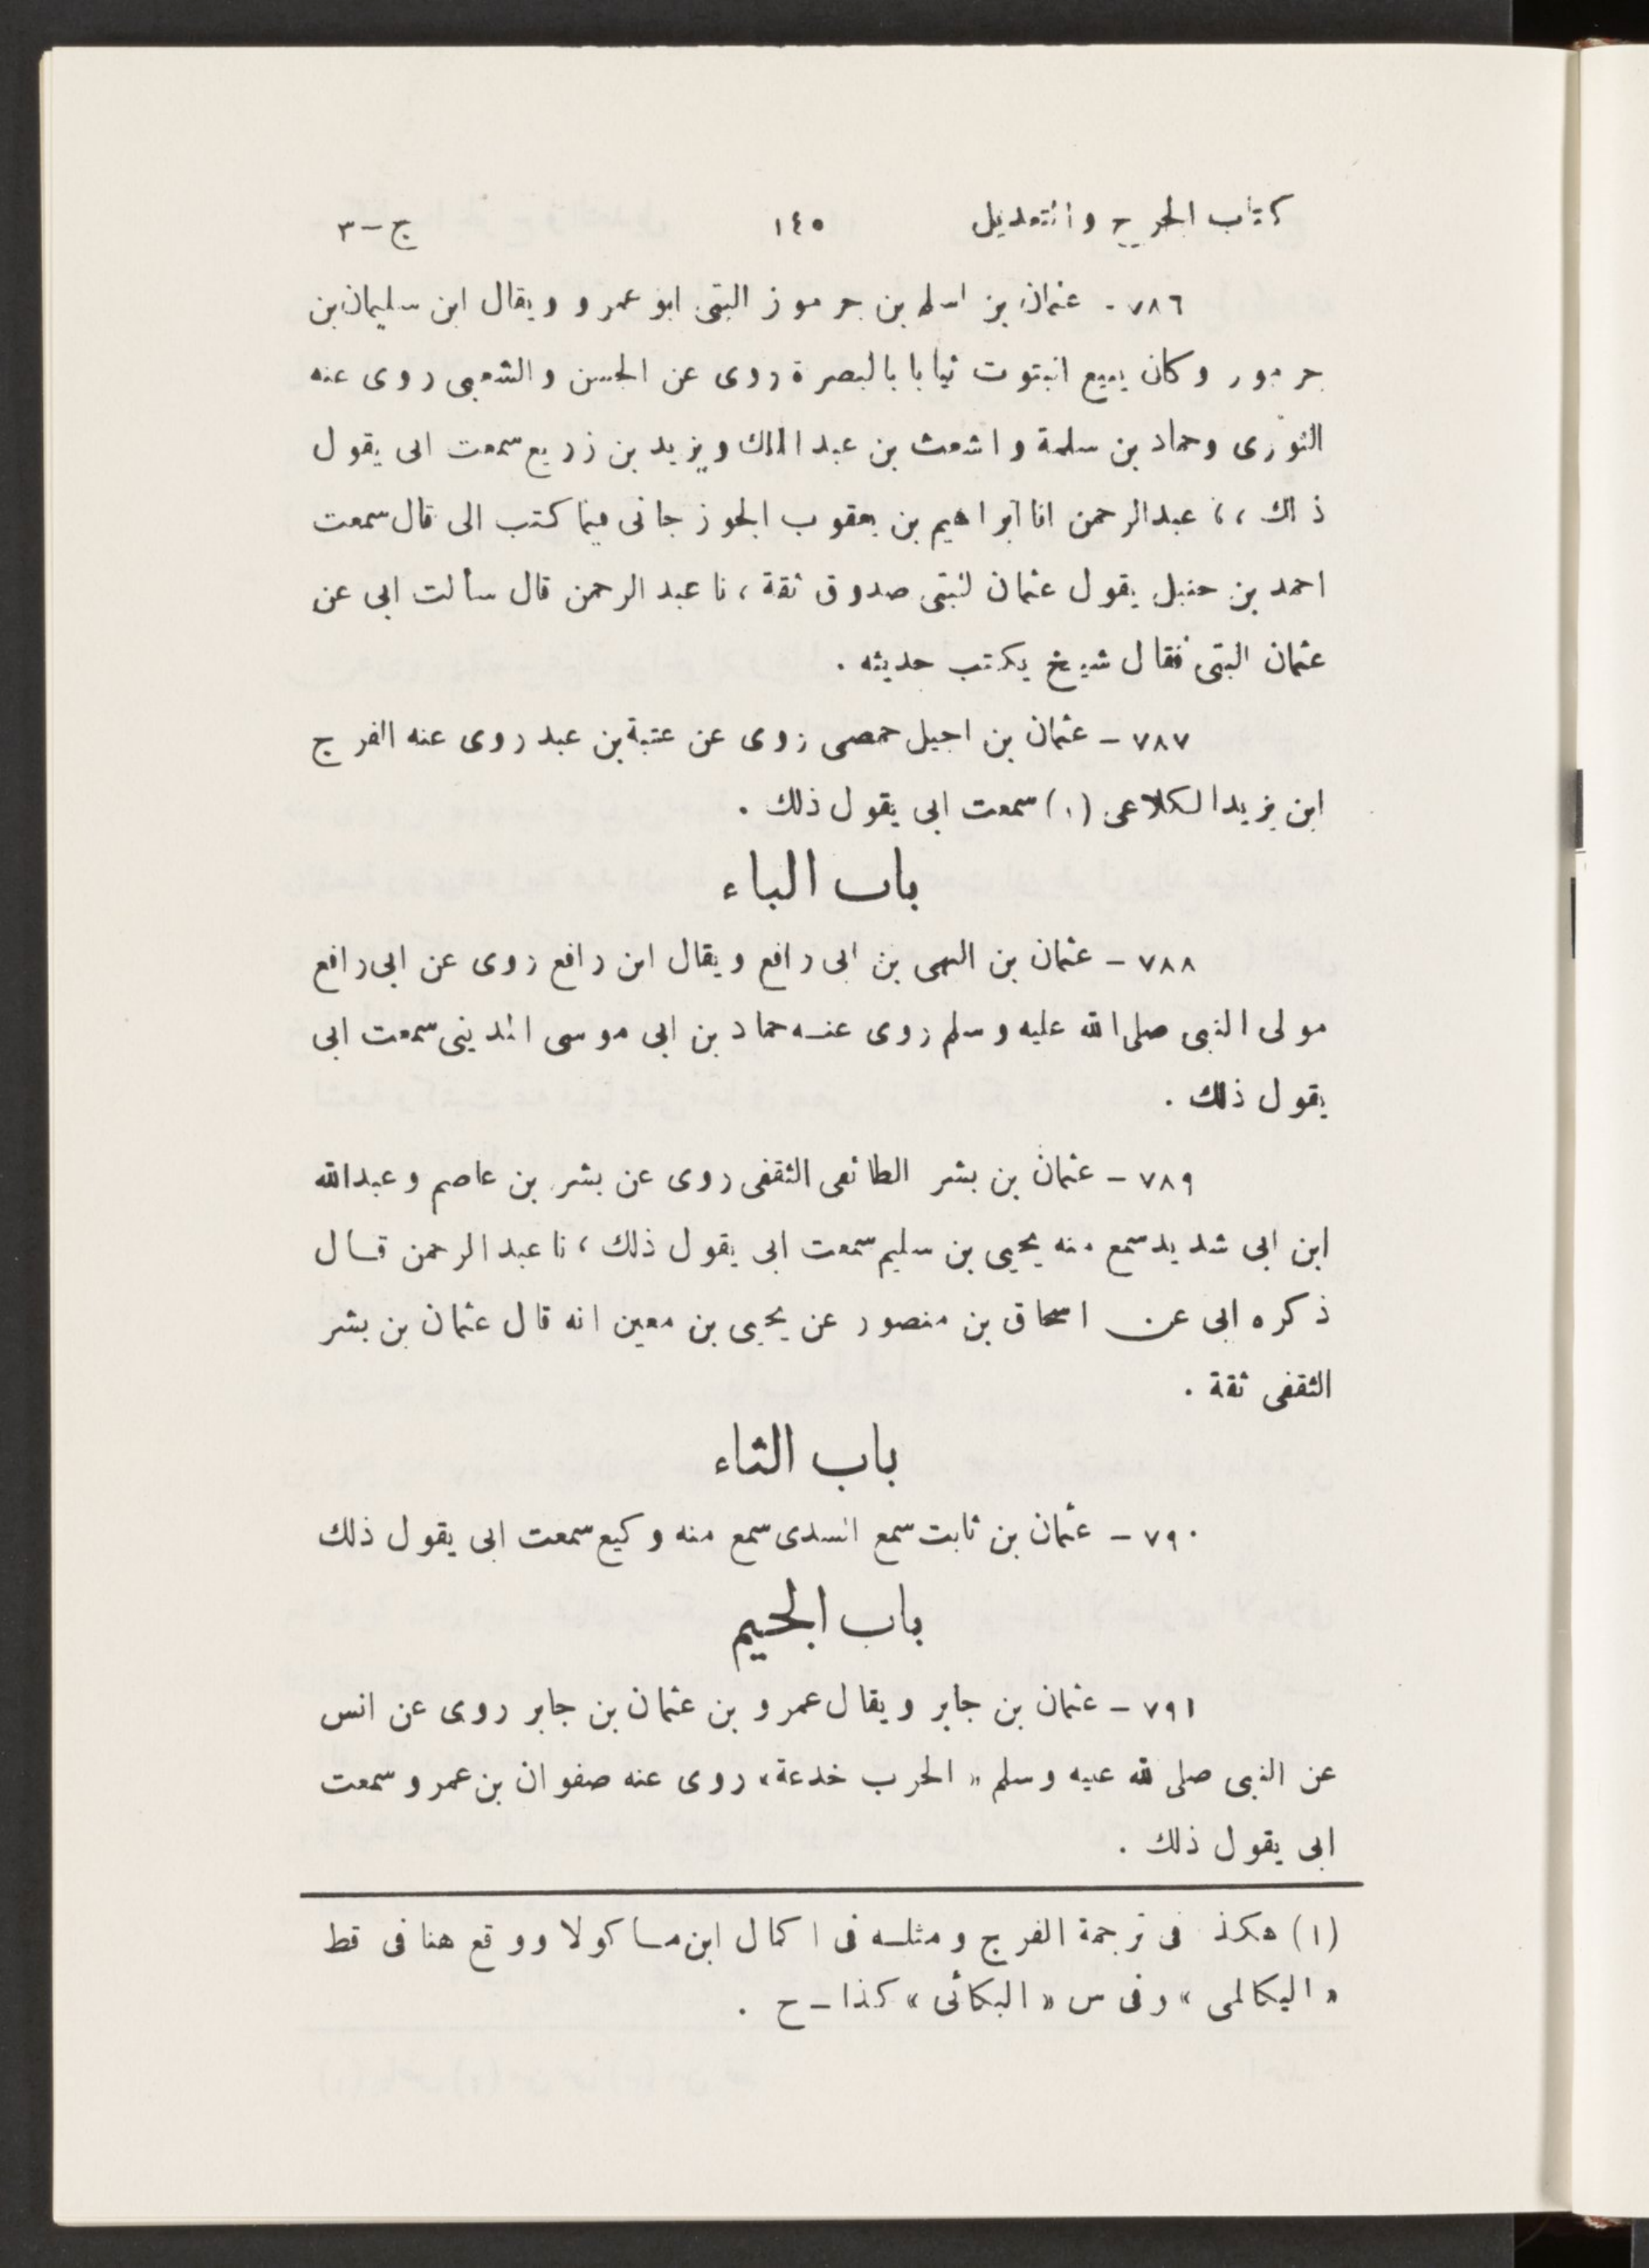 كتاب الجرح والتعديل ١٤٥ ج-٣
٧٨٦ - عثمان بن اسلم بن جرموز البتى ابو عمرو ويقال ابن سليمان بن
جرموز وكان يبيع البتوت ثيابا بالبصرة روى عن الحسن والشعبى روى عنه
الثورى وحماد بن سلمة واشعث بن عبد الملك ويزيد بن زريع سمعت ابى يقول
ذلك ، نا عبد الرحمن انا ابراهيم بن يعقوب الجوزجانى فيما كتب الى قال سمعت
احمد بن حنبل يقول عثمان البتى صدوق ثقة ، نا عبد الرحمن قال سألت ابى عن
عثمان البتى فقال شيخ يكتب حديثه .
٧٨٧ - عثمان بن اجيل حمصى روى عن عتبة بن عبد روى عنه الفرج
ابن يزيد الكلاعى (١) سمعت ابى يقول ذلك .
باب الباء
٧٨٨ - عثمان بن البهى بن ابى رافع ويقال ابن رافع روى عن ابى رافع
مولى النبى صلى الله عليه وسلم روى عنه حماد بن ابى موسى المدينى سمعت ابى
يقول ذلك .
٧٨٩ - عثمان بن بشر الطائفى الثقفى روى عن بشر بن عاصم وعبد الله
ابن ابى شديد سمع منه يحيى بن سليم سمعت ابى يقول ذلك ، نا عبد الرحمن قال
ذكره ابى عن اسحاق بن منصور عن يحيى بن معين انه قال عثمان بن بشر
الثقفى ثقة .
باب الثاء
٧٩٠ - عثمان بن ثابت سمع السدى سمع منه وكيع سمعت ابى يقول ذلك
باب الجيم
٧٩١ - عثمان بن جابر ويقال عمرو بن عثمان بن جابر روى عن انس
عن النبى صلى الله عليه وسلم « الحرب خدعة » روى عنه صفوان بن عمرو سمعت
ابى يقول ذلك .
(١) هكذا فى ترجمة الفرج ومثله فى اكمال ابن ماكولا ووقع هنا فى قط
« اليكالمى » وفى س « البكائى » كذا - ح .